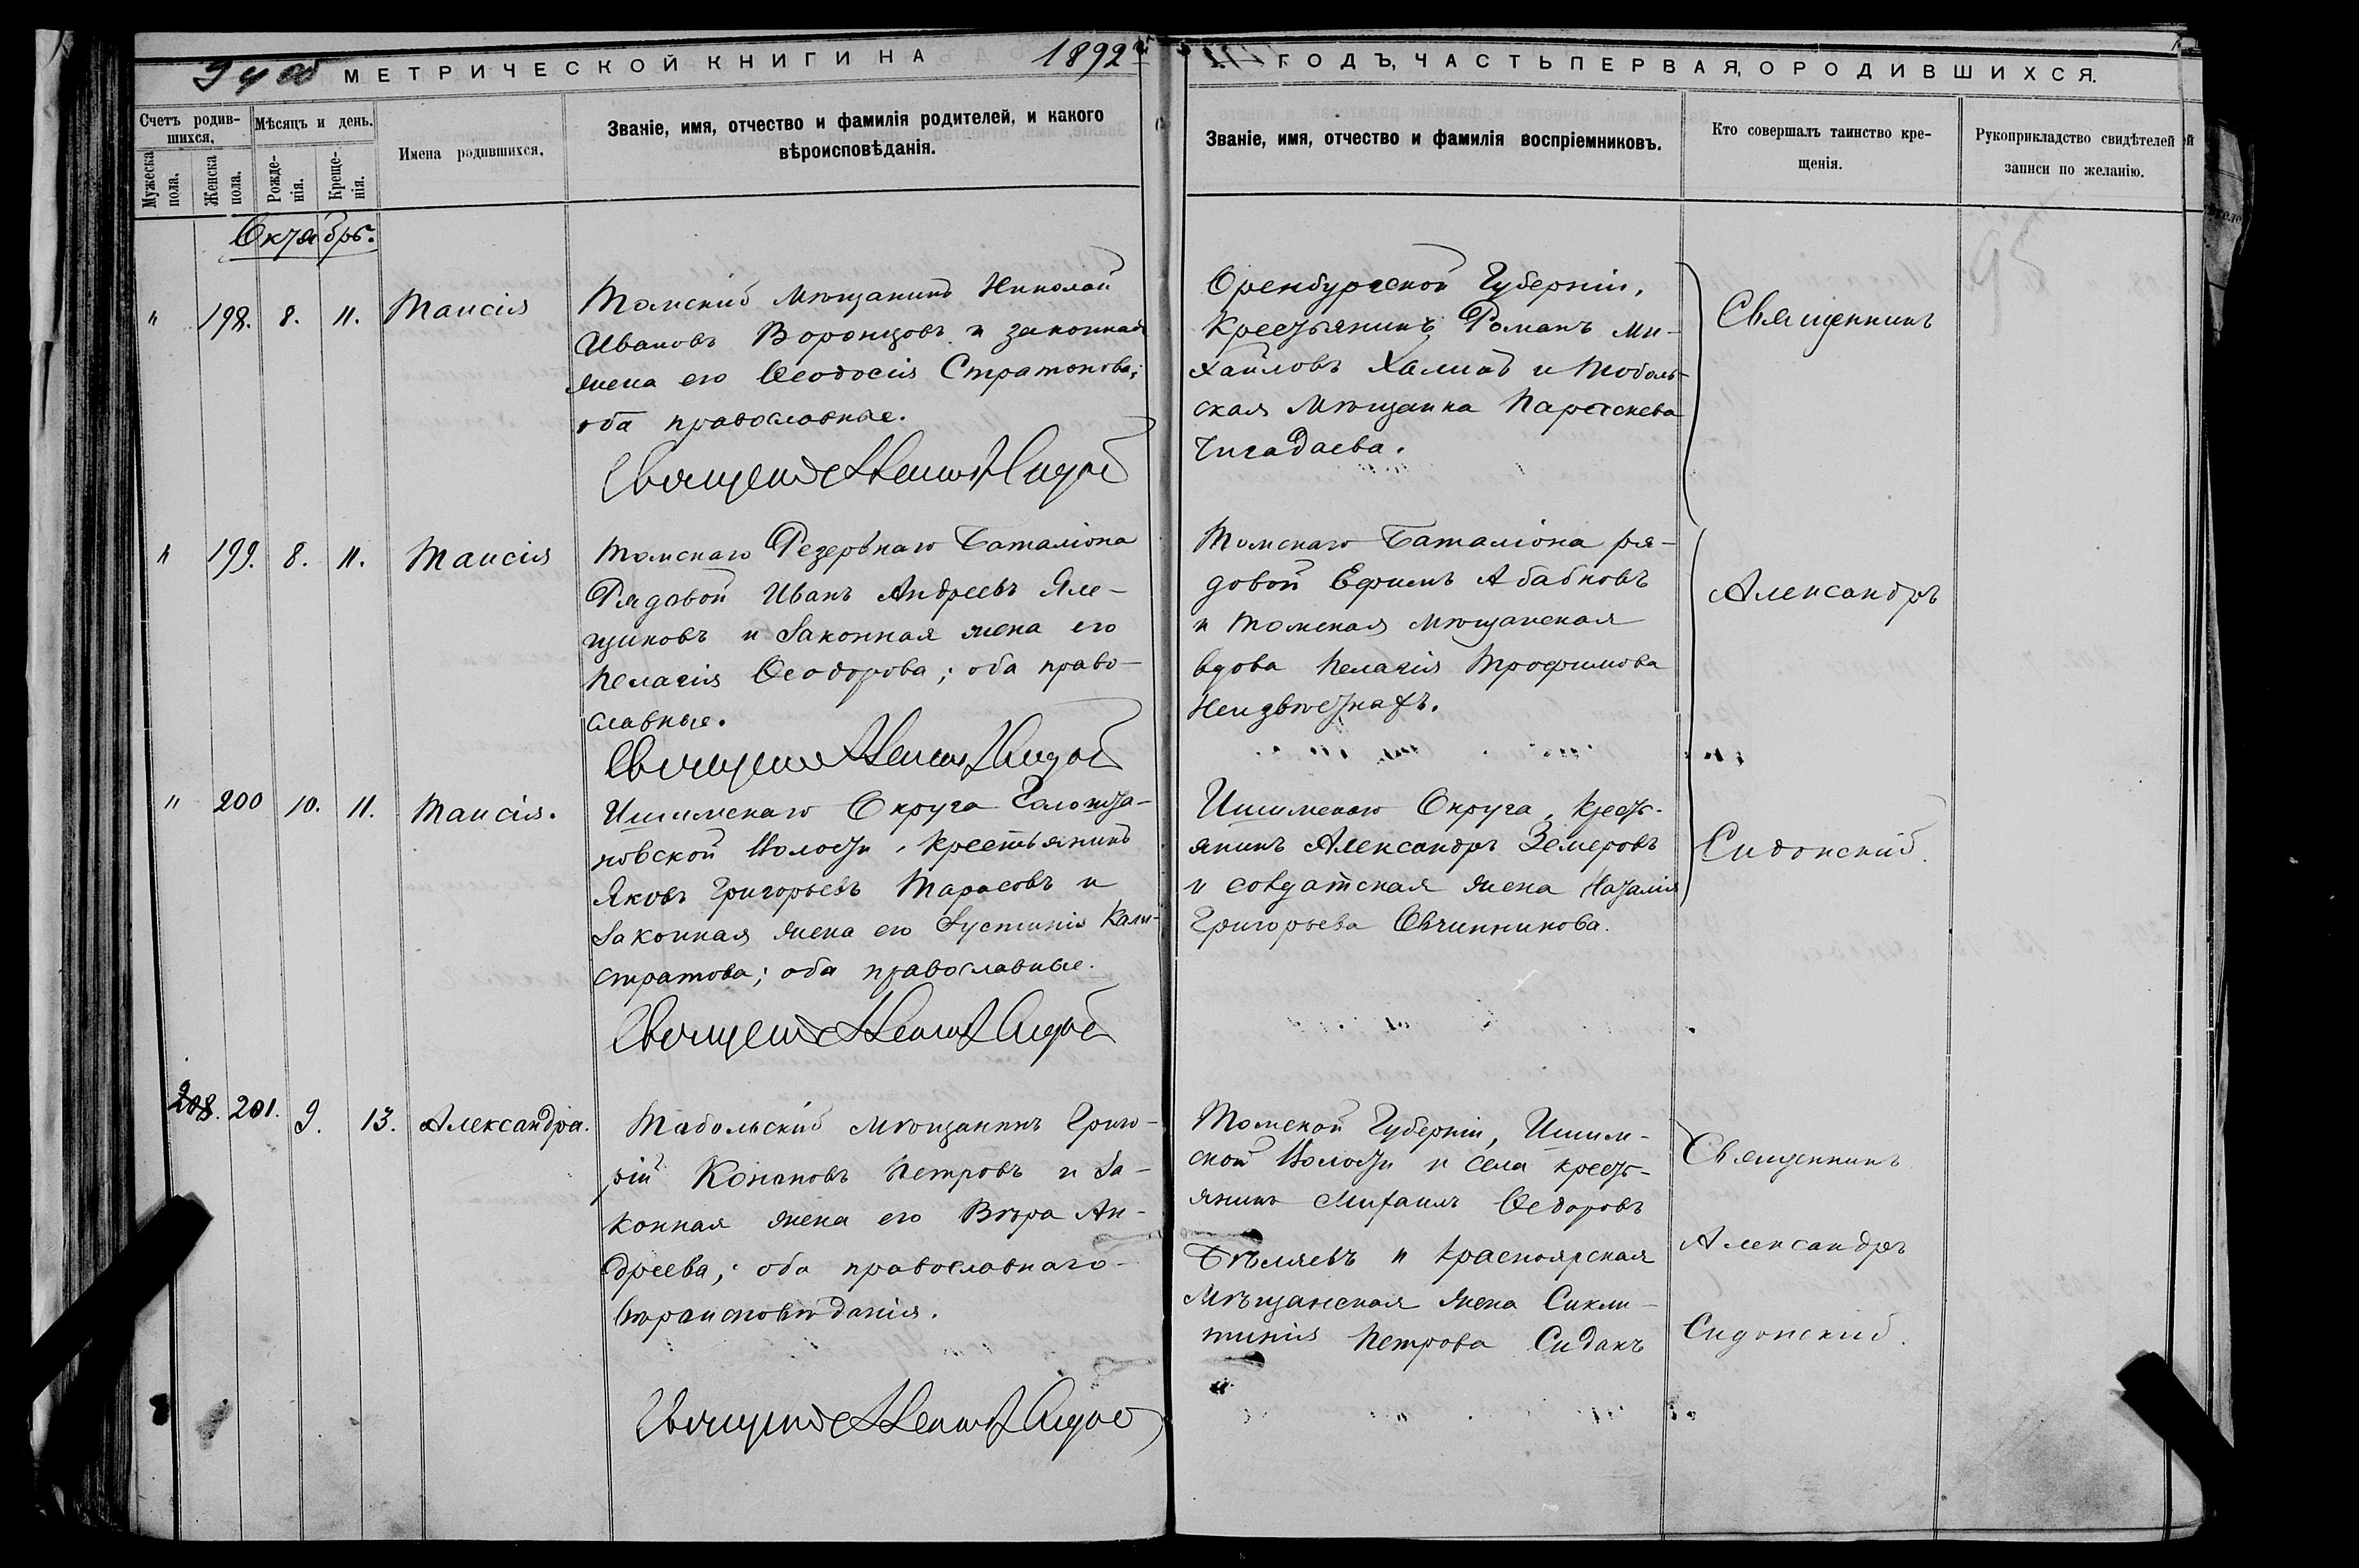 МЕТРИЧЕСКОЙ КНИГИ НА 1892 й
ГОДЪ, ЧАСТЬ ПЕРВАЯ, О РОДИВШИХСЯ.
Счетъ родив-
шихся,
Мужеска
пола.
Женска
пола.
Мѣсяцъ и день.
Рожде-
нія.
Креще-
нія.
Имена родившихся,
Званіе, имя, отчество и фамилія родителей, и какого
вѣроисповѣданія.
Званіе, имя, отчество и фамилія воспріемниковъ.
Кто совершалъ таинство кре-
щенія.
Рукоприкладство свидѣтелей
записи по желанію.
Октябрь.
" 198. 8. 11. Таисія
Томскій Мѣщанинъ Николай
Ивановъ Воронцовъ и законная
жена его Ѳеодосія Стратонова;
оба православные.
Оренбургской Губерніи,
Крестьянинъ Романъ Ми-
хайловъ Халинъ и Тоболь-
ская Мѣщанка Параскева
Чигадаева.
Священникъ
" 199. 8. 11. Таисія
Томскаго Резервнаго Баталіона
Рядовой Иванъ Андреевъ Яле-
щиковъ и Законная жена его
Пелагія Ѳеодорова; оба право-
славные.
Томскаго Баталіона ря-
довой Ефимъ Абабковъ
и Томская мѣщанская
вдова Пелагія Трофимова
Неизвѣстнахъ.
Александръ
" 200 10. 11. Таисія.
Ишимскаго Округа
новской Волости, Крестьянинъ
Яковъ Григорьевъ Тарасовъ и
Законная жена его Іустинія Кали-
стратова; оба православные.
Ишимскаго Округа, крест-
янинъ Александръ Земеровъ
и солдатская жена Наталія
Григорьева Овчинникова.
Сидонскій.
208. 201. 9. 13. Александра.
Табольскій мѣщанинъ Григо-
рій Конановъ Петровъ и За-
конная жена его Вѣра Ан-
дреева; оба православнаго
вѣраисповѣданія.
Томской Губерніи, Ишим-
ской Волости и села крест-
янинъ Михаилъ Ѳедоровъ
Бѣляевъ и Красноярская
Мѣщанская Жена Сикли-
тинія Петрова Сиданъ
Священникъ
Александръ
Сидонскій.